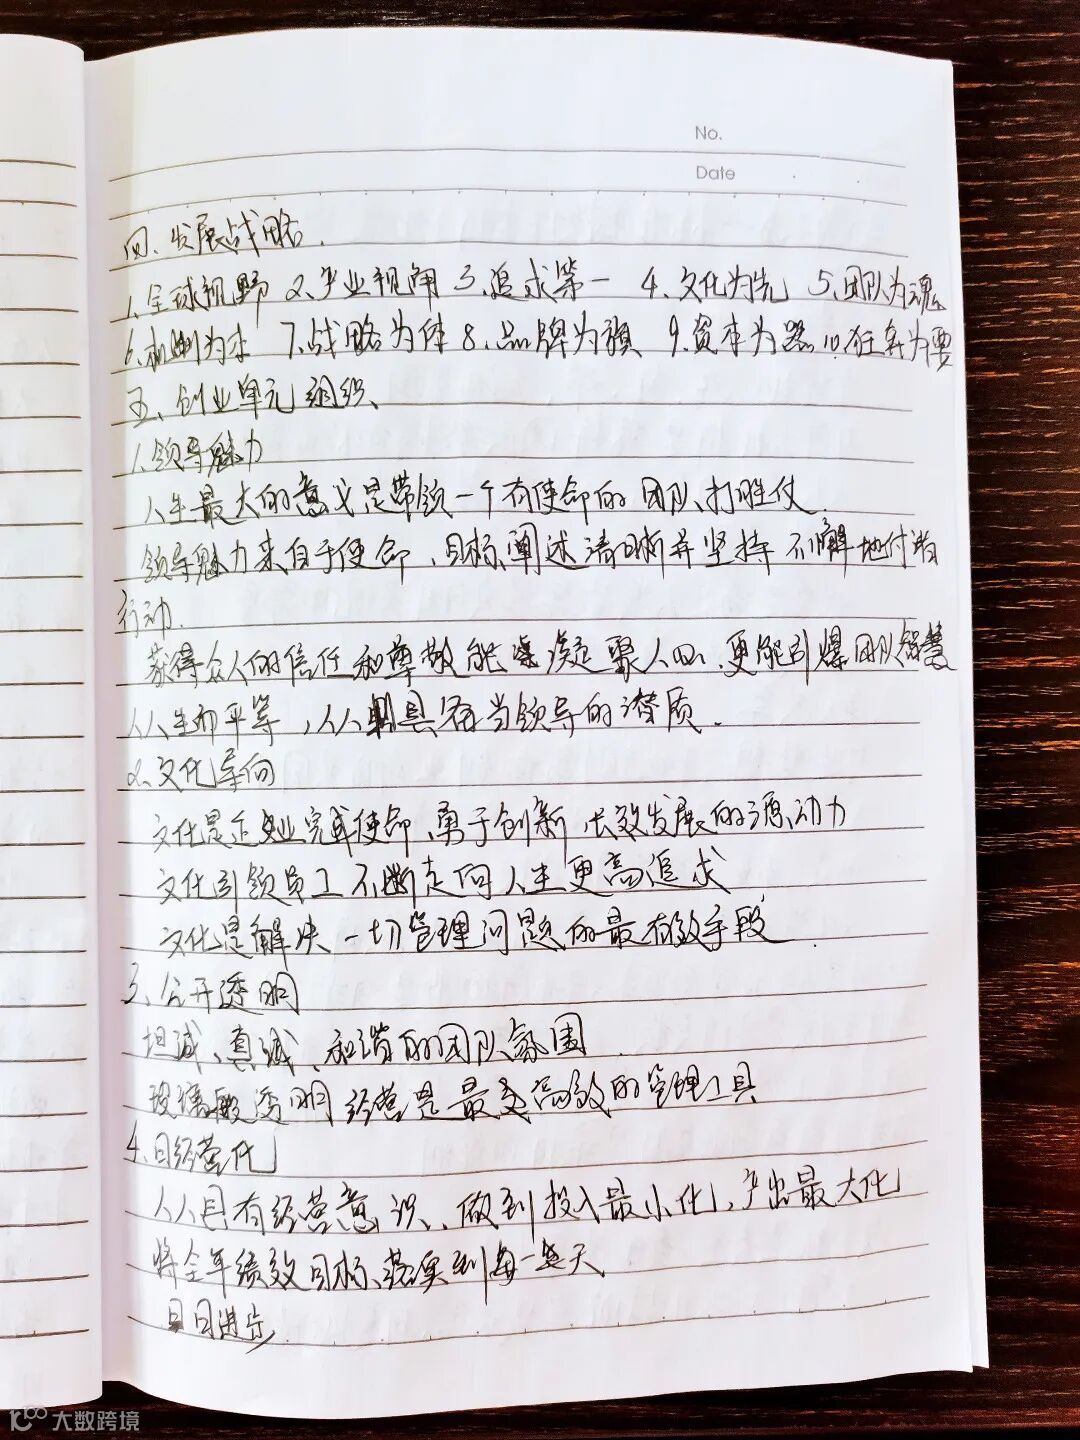 No.
Date
四、发展战略.
1、全球视野 2、产业视角 3、追求第一 4、文化为先 5、团队为魂
6、机制为本 7、战略为体 8、品牌为旗 9、资本为器 10、任务为要
五、创业单元组织、
1、领导魅力
人生最大的意义是带领一个有使命的团队打胜仗.
领导魅力来自于使命、目标、阐述清晰并坚持不懈地付诸
行动.
获得众人的信任和尊敬能凝聚人心、更能引爆团队智慧
人人生而平等，人人具备当领导的潜质.
2、文化导向
文化是企业完成使命、勇于创新 长效发展的源动力
文化引领员工不断走向人生更高追求
文化是解决一切管理问题的最有效手段.
3、公开透明
坦诚、真诚、和谐的团队氛围
玻璃般透明经营是最高效的管理工具
4、日经营化
人人具有经营意识、做到投入最小化，产出最大化
将全年绩效目标、落实到每一天
日日进步.
大数跨境